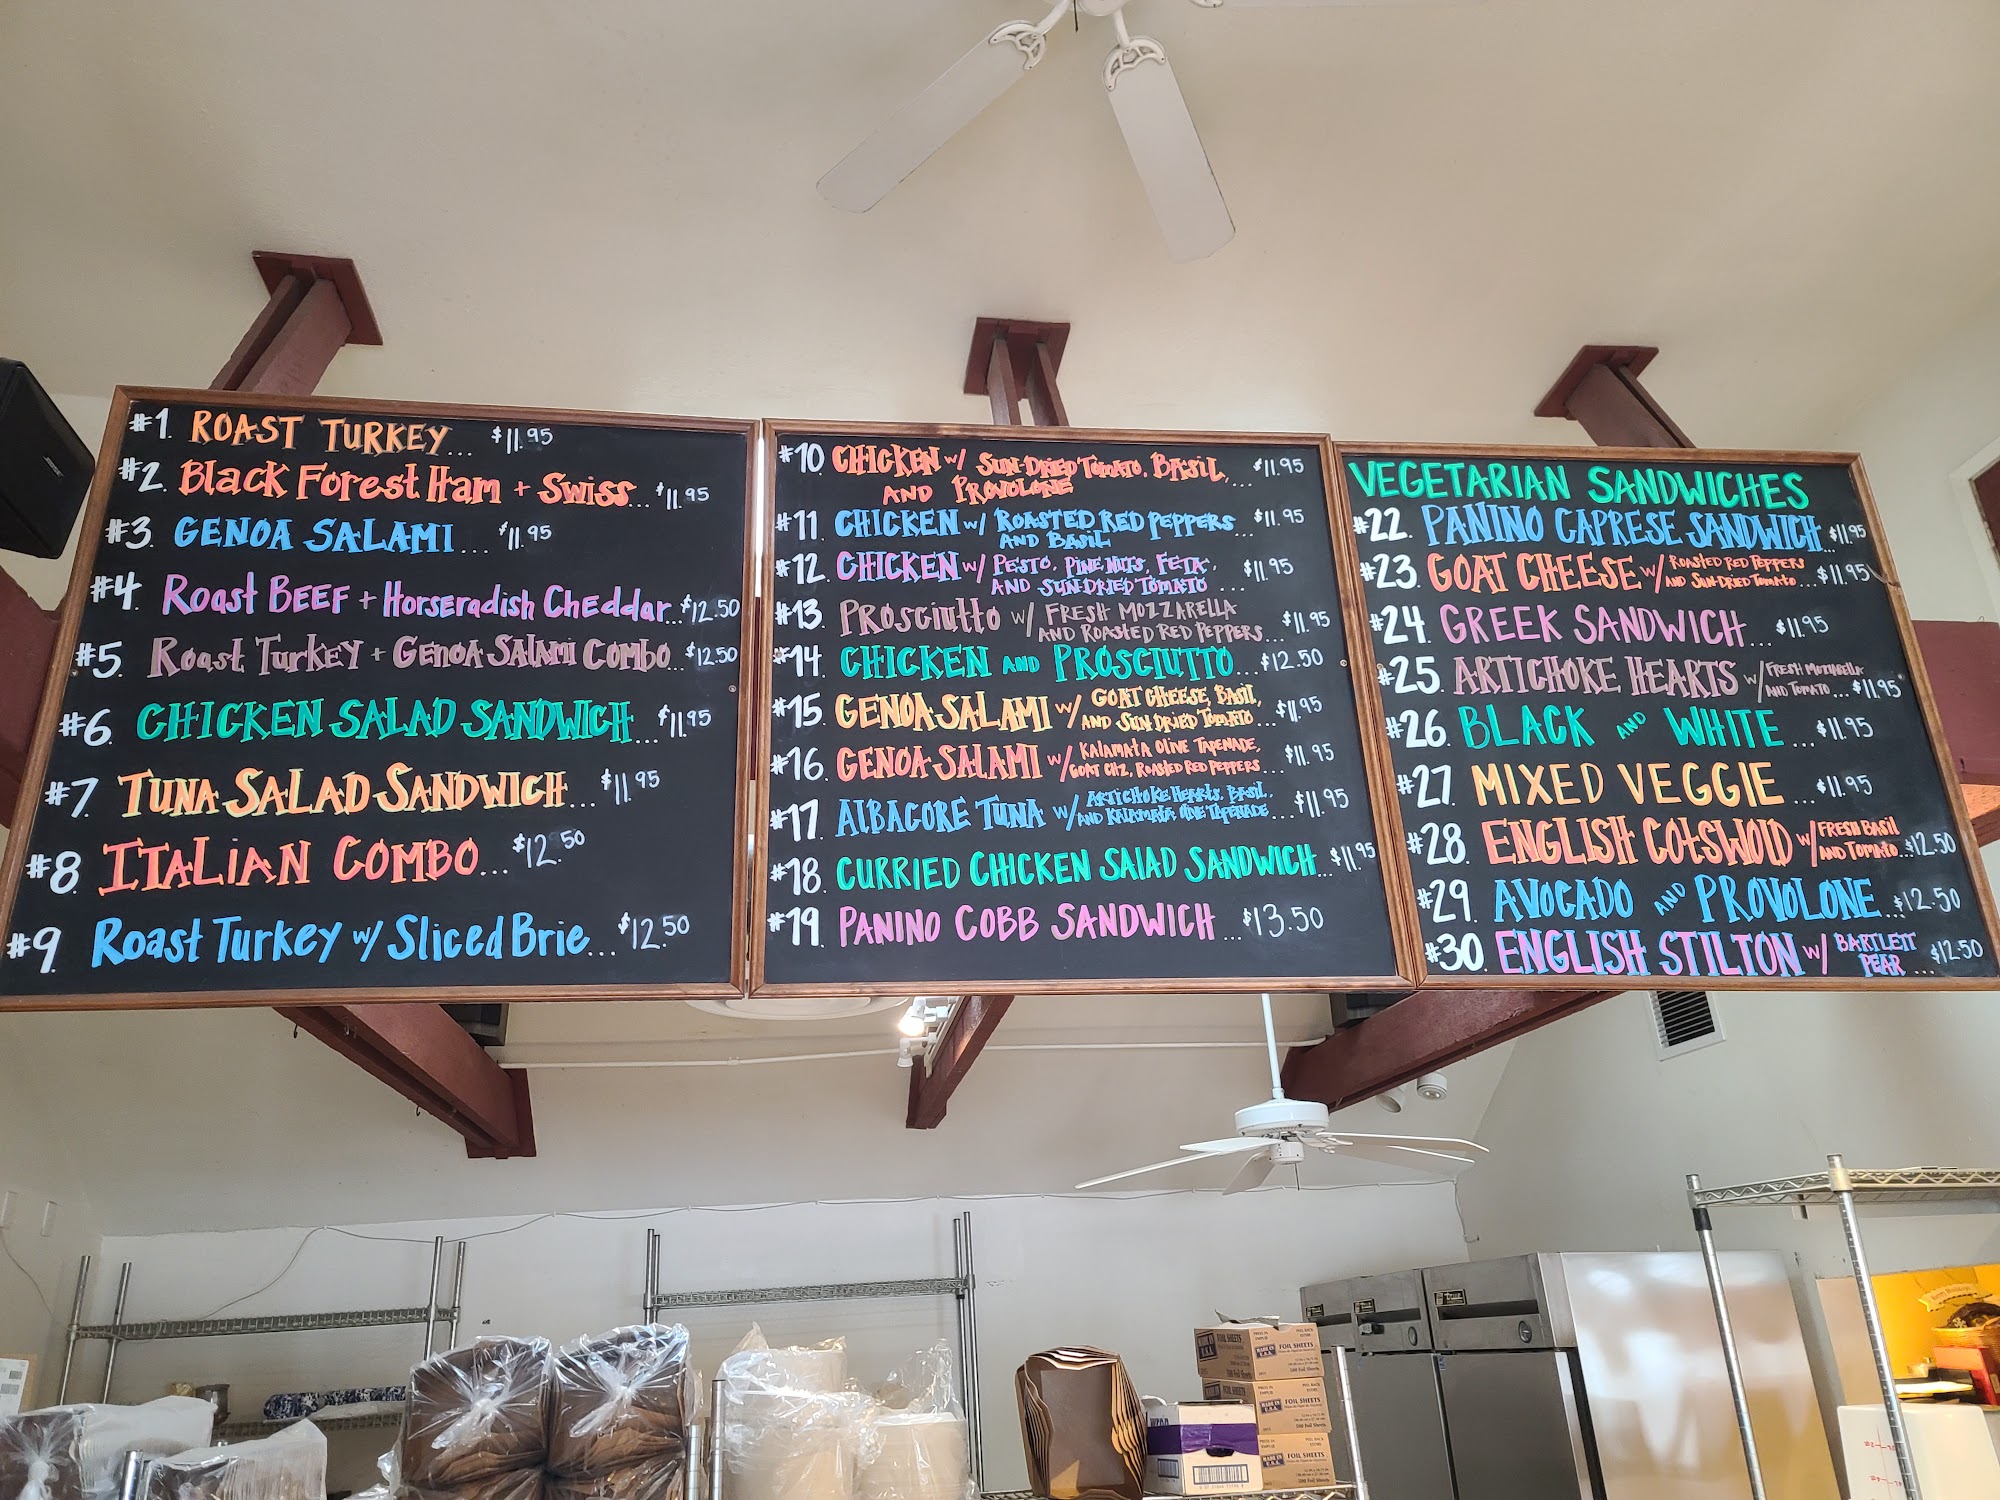 #1. ROAST TURKEY... $11.95
#2. Black Forest Ham + Swiss... $11.95
#3. GENOA SALAMI... $11.95
#4. Roast BEEF + Horseradish Cheddar... $12.50
#5. Roast Turkey + Genoa Salami Combo... $12.50
#6. CHICKEN SALAD SANDWICH... $11.95
#7. TUNA SALAD SANDWICH... $11.95
#8. ITALIAN COMBO... $12.50
#9. Roast Turkey w/ Sliced Brie... $12.50
#10 CHICKEN w/ SUN-DRIED TOMATO, BASIL, ... $11.95
AND PROVOLONE
#11. CHICKEN w/ ROASTED RED PEPPERS ... $11.95
AND BASIL
#12. CHICKEN w/ PESTO, PINE NUTS, FETA, $11.95
AND SUN-DRIED TOMATO ...
#13. PROSCIUTTO w/ FRESH MOZZARELLA
AND ROASTED RED PEPPERS... $11.95
#14. CHICKEN AND PROSCIUTTO... $12.50
#15. GENOA SALAMI w/ GOAT CHEESE, BASIL,
AND SUN DRIED TOMATO ... $11.95
#16. GENOA SALAMI w/ KALAMATA OLIVE TAPENADE,
GOAT CHZ, ROASTED RED PEPPERS ... $11.95
#17. ALBACORE TUNA w/ ARTICHOKE HEARTS, BASIL,
AND KALAMATA OLIVE TAPENADE... $11.95
#18. CURRIED CHICKEN SALAD SANDWICH... $11.95
#19. PANINO COBB SANDWICH ... $13.50
VEGETARIAN SANDWICHES
#22. PANINO CAPRESE SANDWICH... $11.95
#23. GOAT CHEESE w/ ROASTED RED PEPPERS
AND SUN-DRIED TOMATO... $11.95
#24. GREEK SANDWICH... $11.95
#25. ARTICHOKE HEARTS w/ FRESH MOZZARELLA
AND TOMATO ... $11.95
#26. BLACK AND WHITE ... $11.95
#27. MIXED VEGGIE ... $11.95
#28. ENGLISH COTSWOLD w/ FRESH BASIL
AND TOMATO... $12.50
#29. AVOCADO AND PROVOLONE... $12.50
#30. ENGLISH STILTON w/ BARTLETT
PEAR ... $12.50
FOIL SHEETS
MADE IN U.S.A.
FOIL SHEETS
FOIL SHEETS